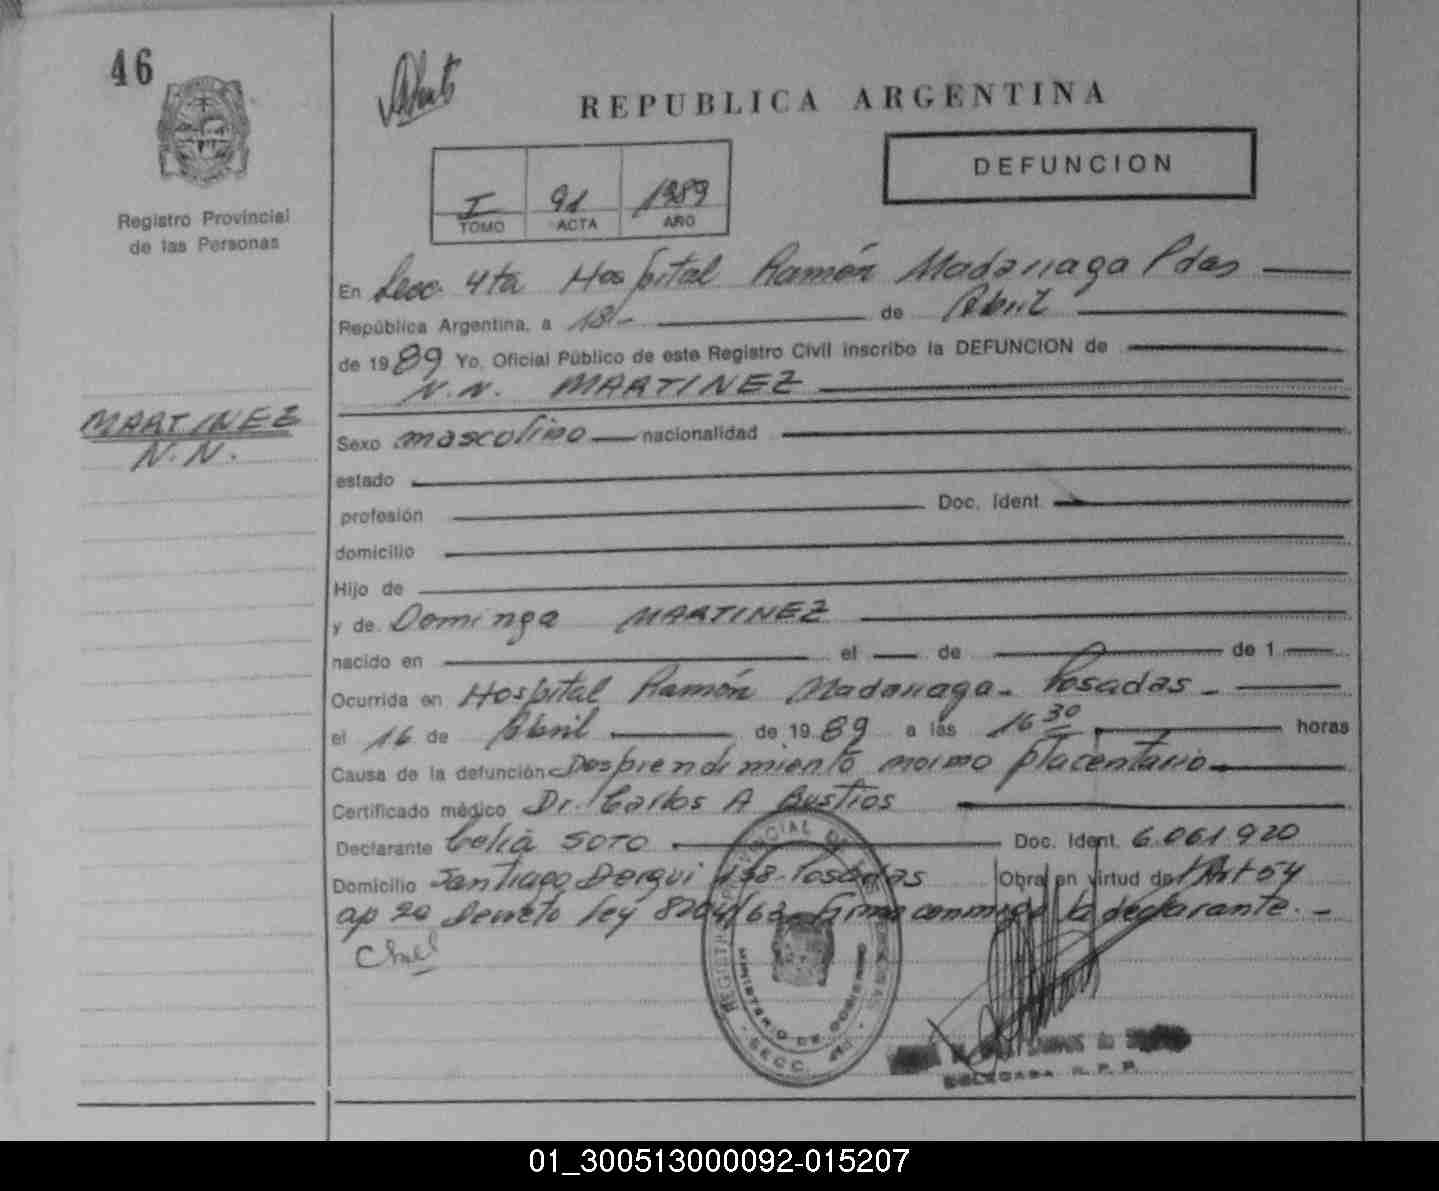 46
Registro Provincial
de las Personas
MARTINEZ
N.N.
REPUBLICA ARGENTINA
DEFUNCION
I 91 1989
TOMO ACTA AÑO
En Secc. 4ta Hospital Ramón Madariaga Pdas
República Argentina, a 18.- de Abril
de 1989 Yo, Oficial Público de este Registro Civil inscribo la DEFUNCION de
N.N. MARTINEZ
Sexo masculino nacionalidad
estado
profesión Doc. Ident.
domicilio
Hijo de
y de Dominga MARTINEZ
nacido en el de de 1
Ocurrida en Hospital Ramón Madariaga - Posadas -
el 16 de Abril de 1989 a las 16 30 horas
Causa de la defunción Desprendimiento placentario
Certificado médico Dr. Carlos A Bustios
Declarante Celia SOTO Doc. Ident. 6.061.920
Domicilio Santiago Derqui 158 - Posadas Obra en virtud de Art 54
ap 2o Decreto Ley 8204/63 - Firma conmigo la declarante. -
REGISTRO PROVINCIAL DE LAS PERSONAS
MINISTERIO DE GOBIERNO
SECC. 4ta
DELEGADA R. P. P.
01_300513000092-015207